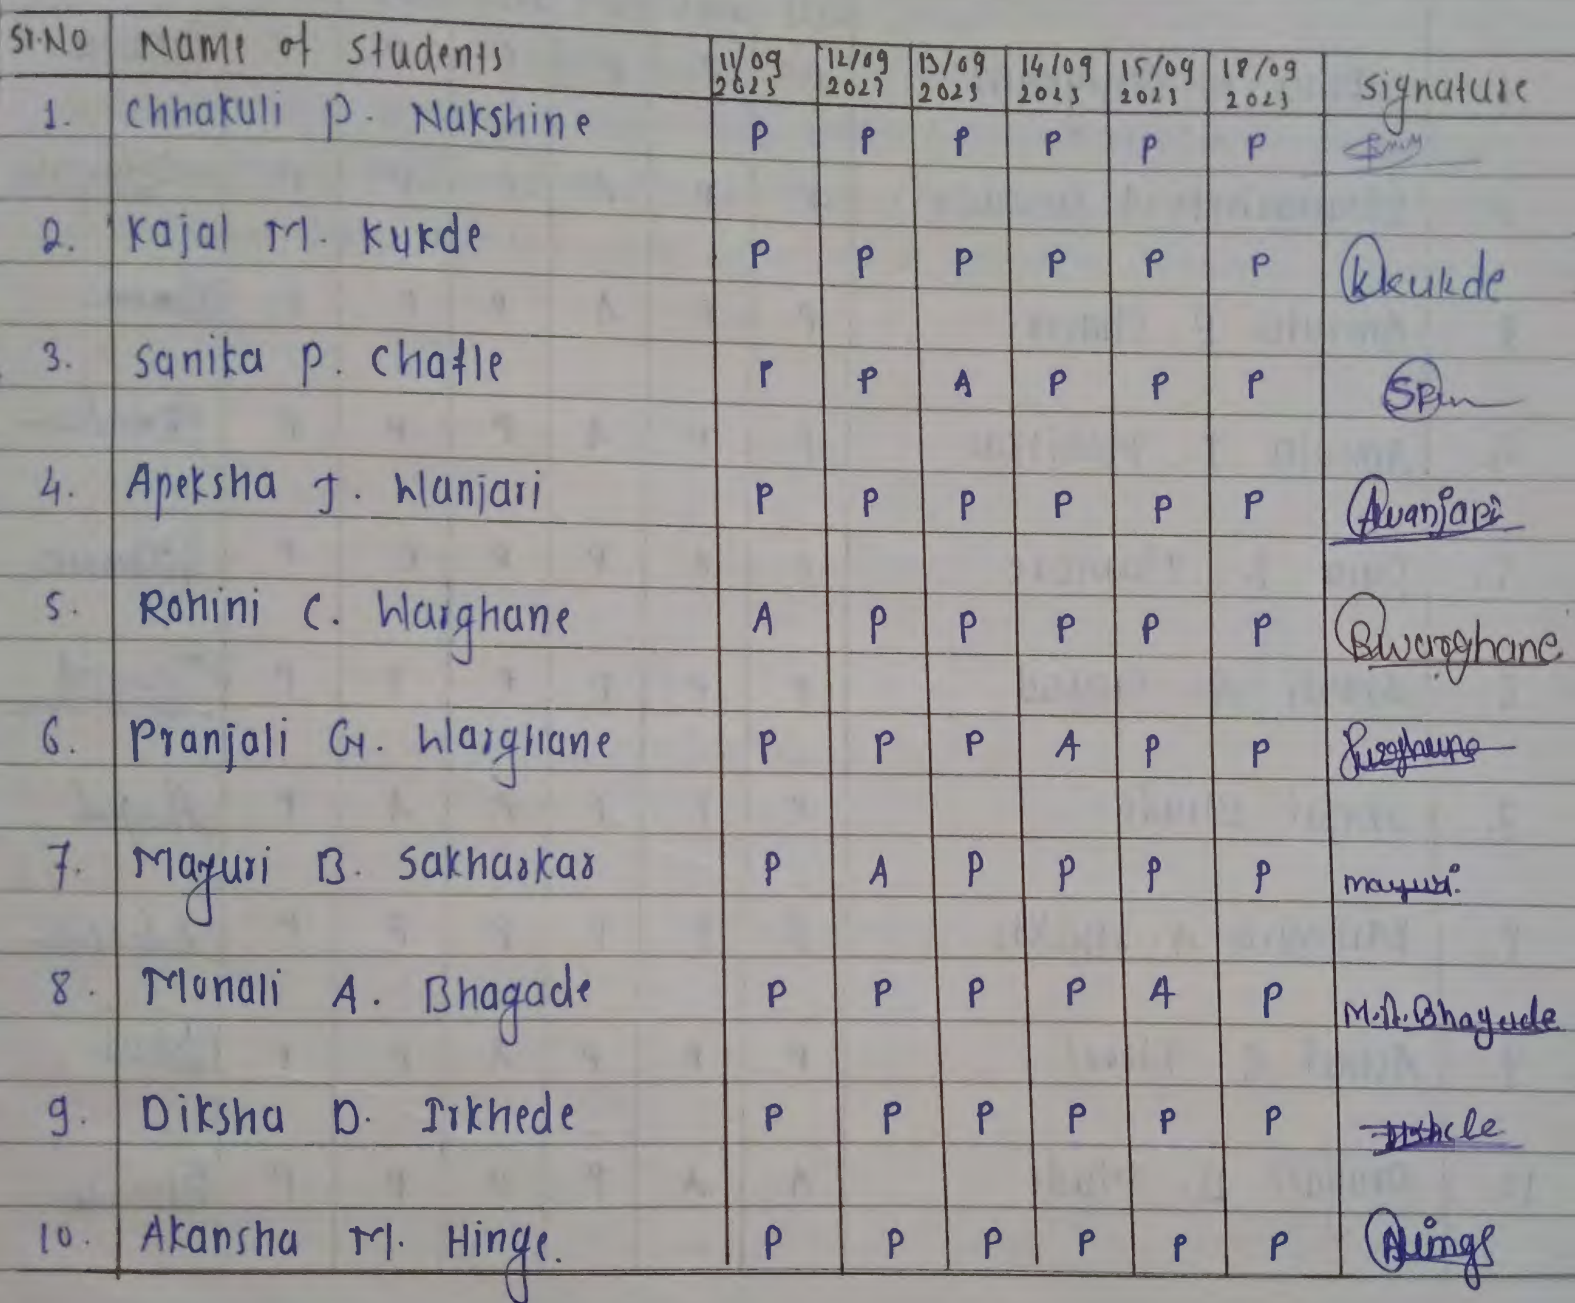 Sr.No Name of Students 11/09 2023 12/09 2023 13/09 2023 14/09 2023 15/09 2023 18/09 2023 Signature
1. Chhakuli P. Nakshine P P P P P P
2. Kajal M. Kukde P P P P P P Kkukde
3. Sanika P. Chafle P P A P P P
4. Apeksha J. Wanjari P P P P P P Awanjari
5. Rohini C. Warghane A P P P P P Rwarghane
6. Pranjali G. Warghane P P P A P P
7. Mayuri B. Sakharkar P A P P P P mayuri.
8. Monali A. Bhagade P P P P A P M.A.Bhagade
9. Diksha D. Irkhede P P P P P P
10. Akansha M. Hinge. P P P P P P